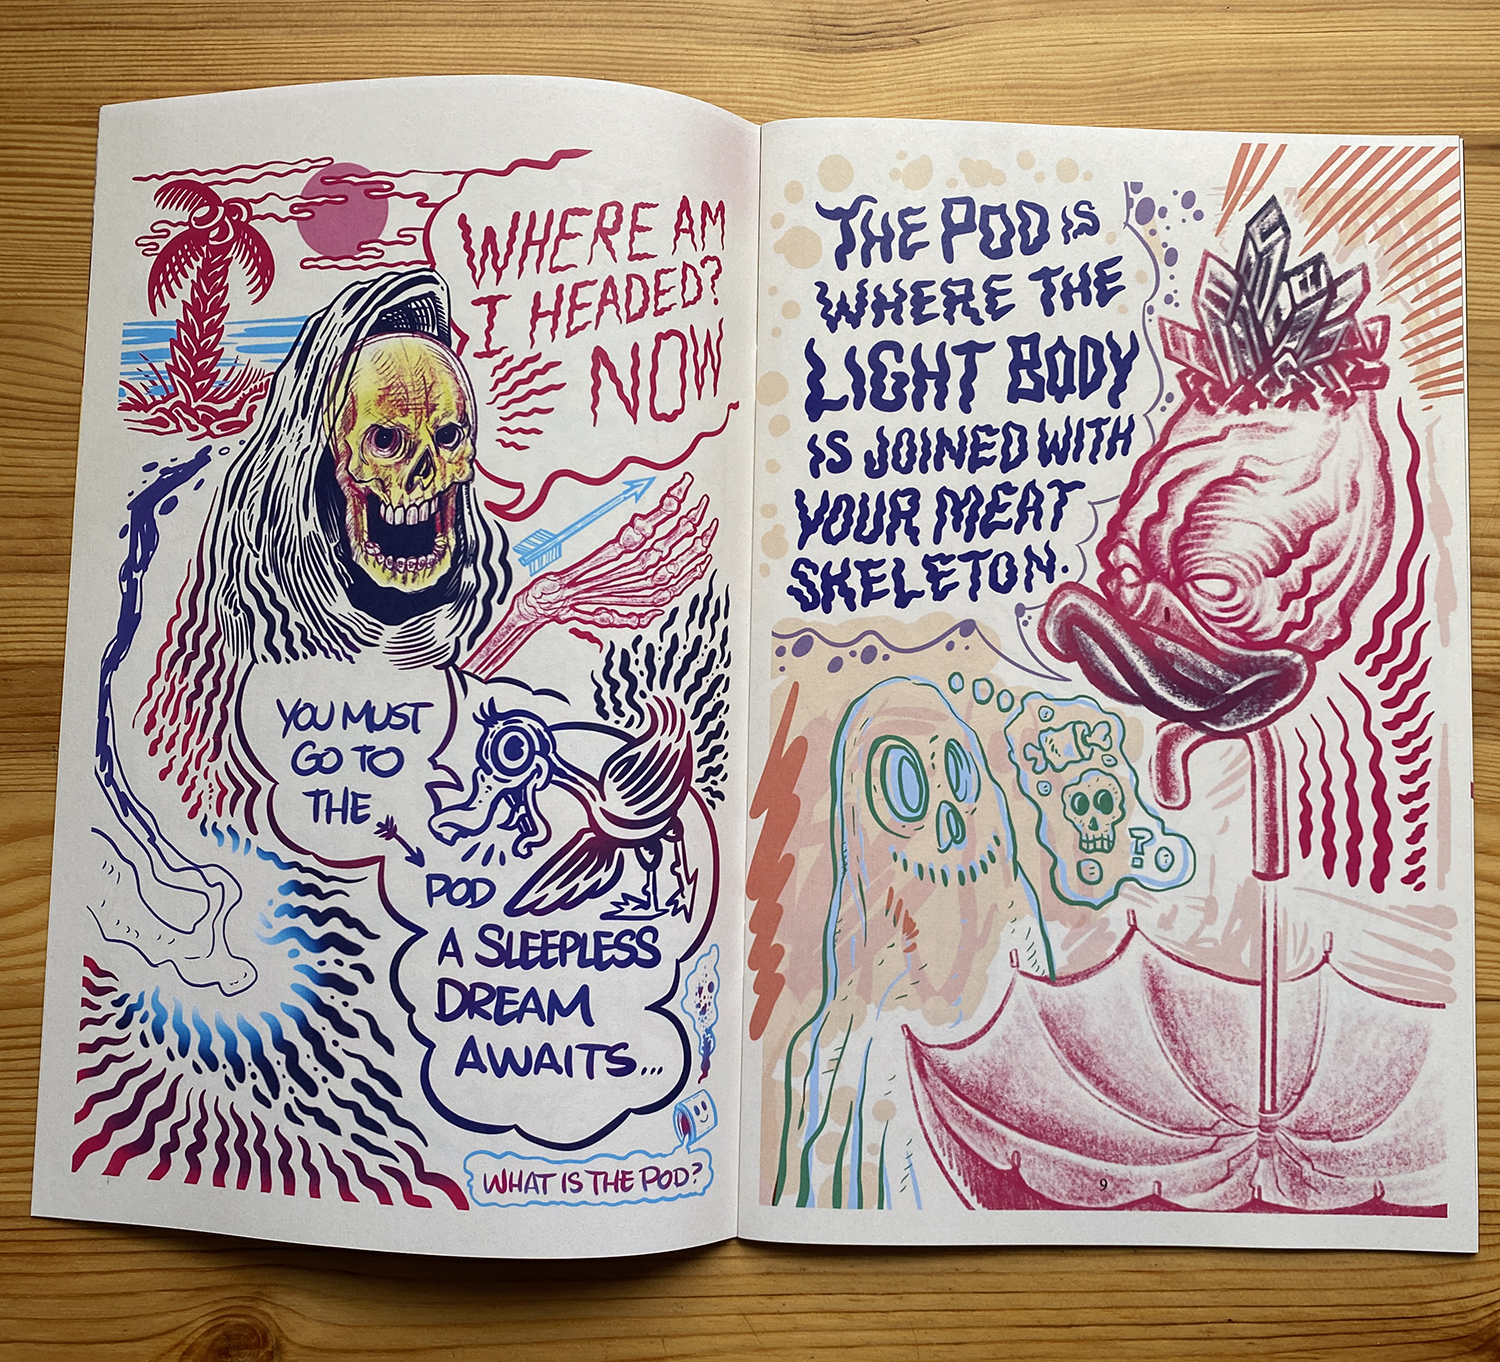 WHERE AM
I HEADED?
NOW
YOU MUST
GO TO
THE
POD
A SLEEPLESS
DREAM
AWAITS...
WHAT IS THE POD?
THE POD IS
WHERE THE
LIGHT BODY
IS JOINED WITH
YOUR MEAT
SKELETON.
?
9